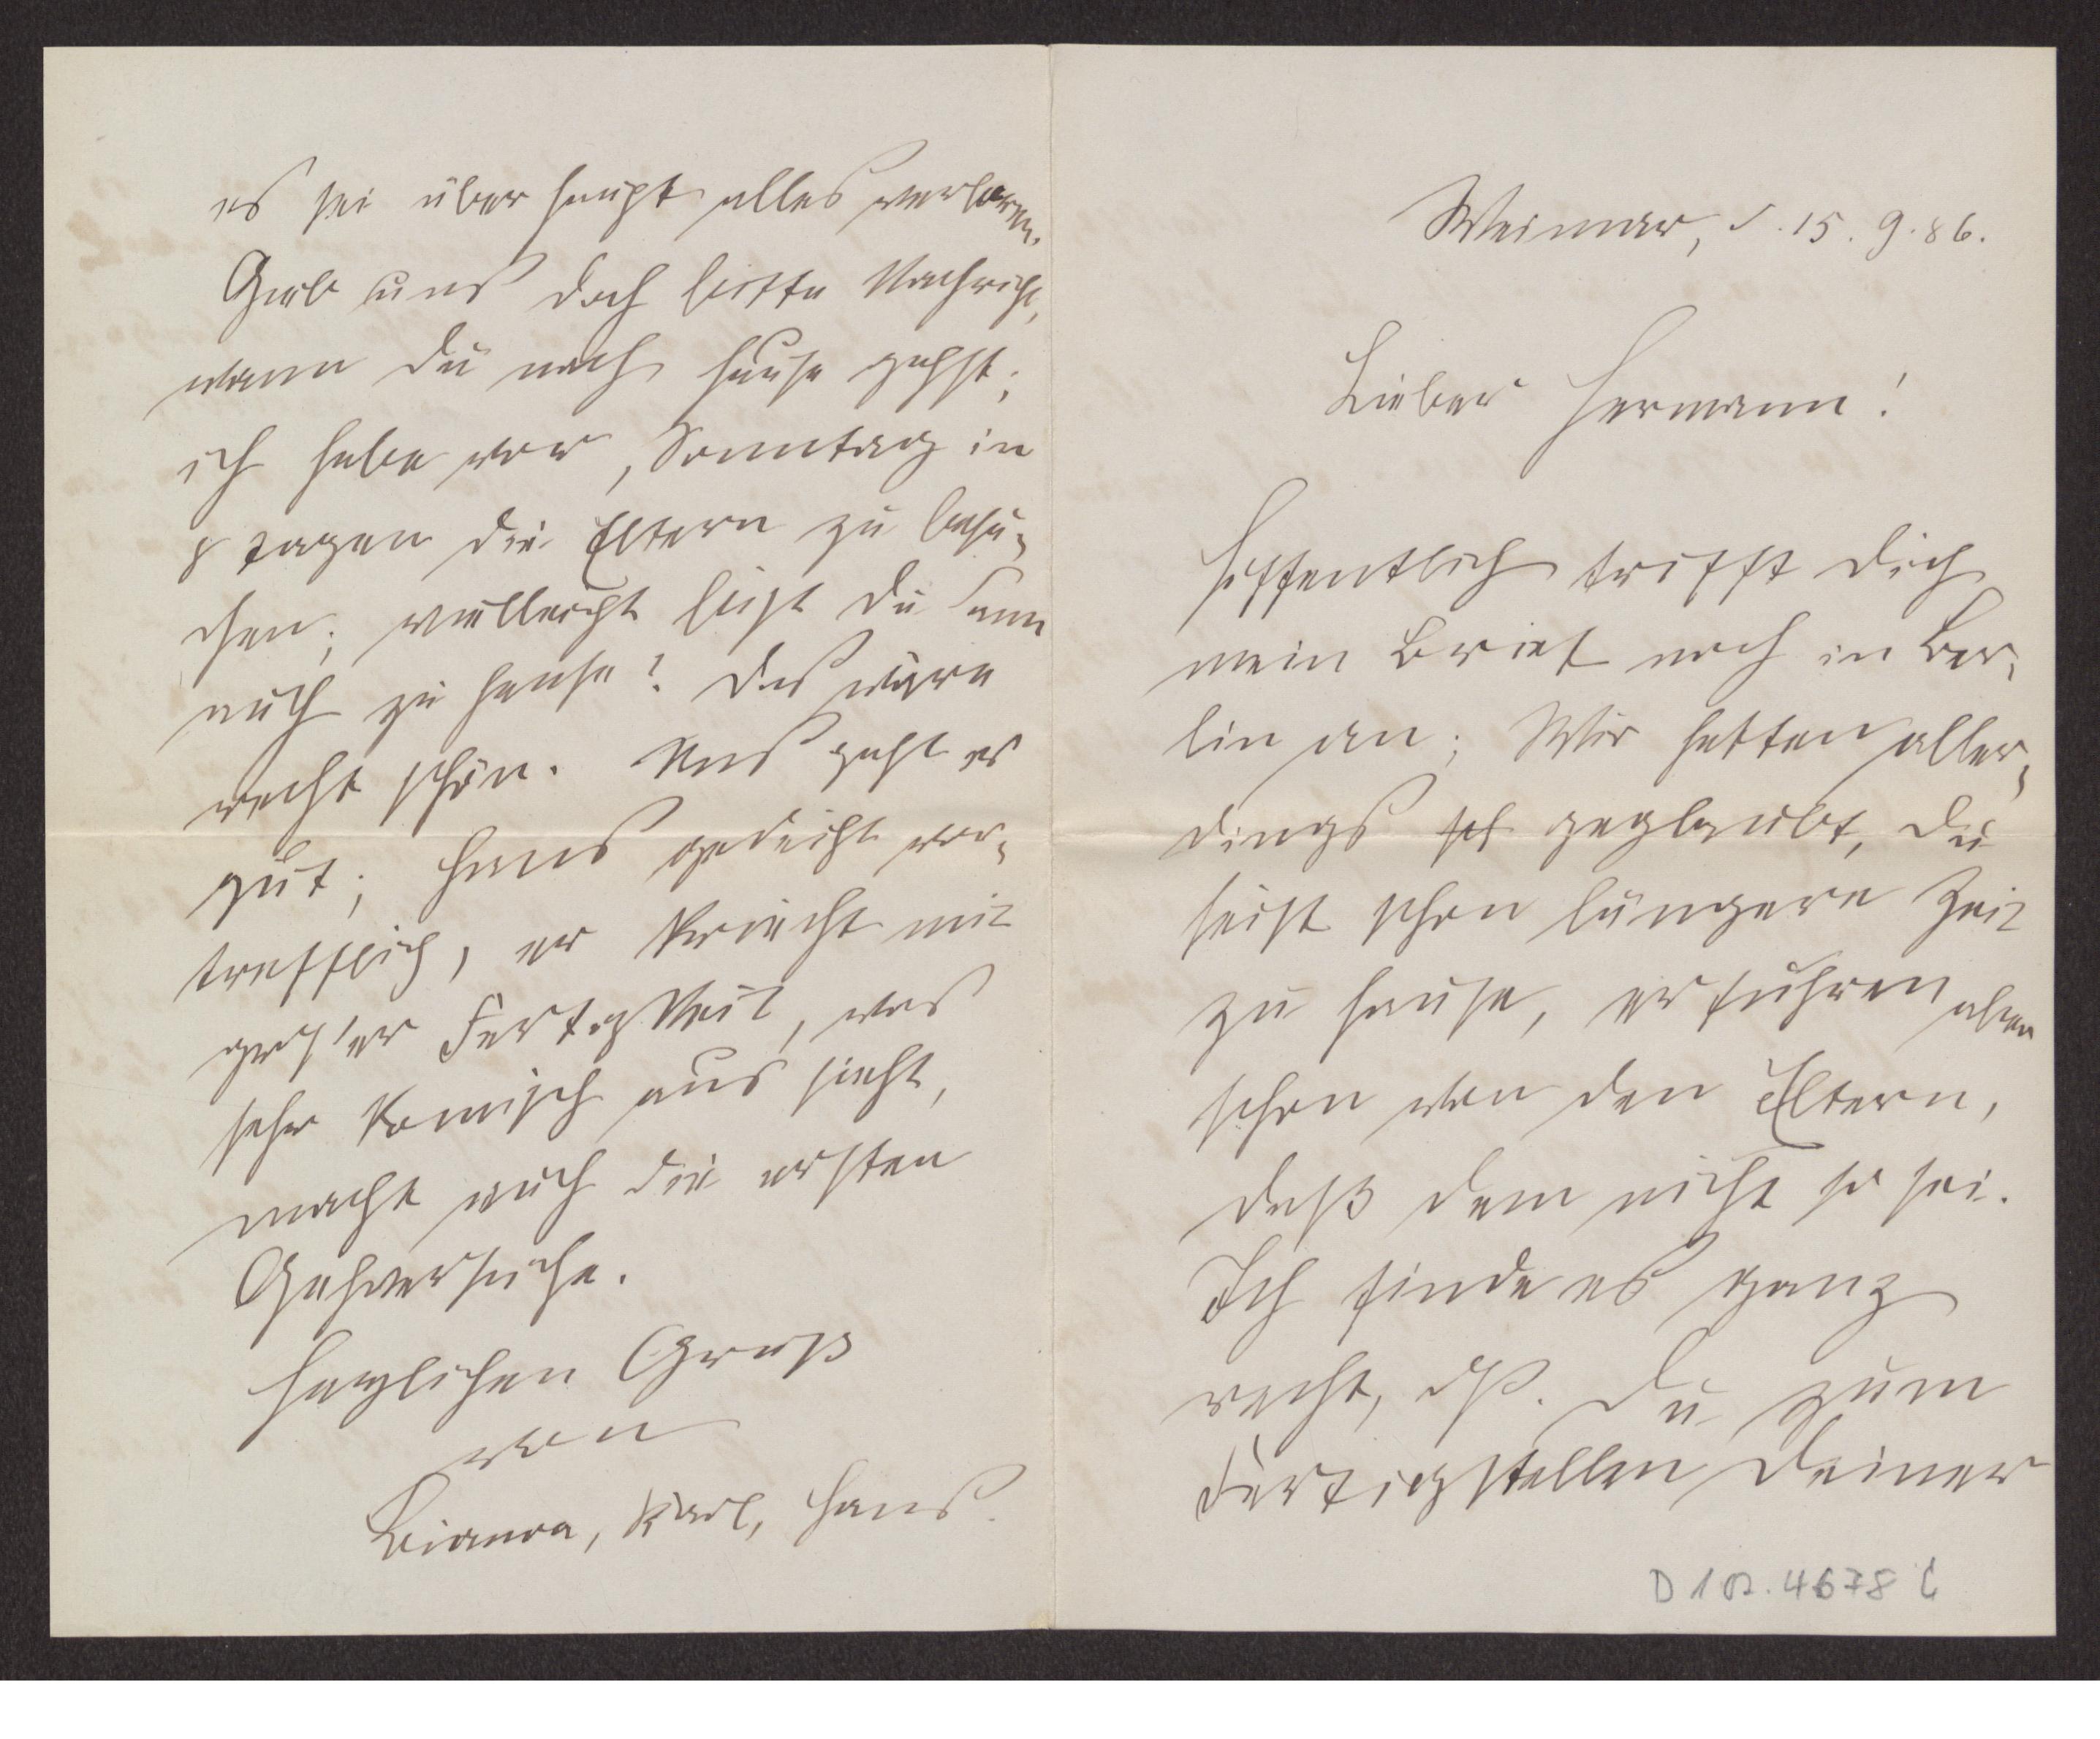 Weimar, d. 15. 9. 86.
Lieber Hermann!
Hoffentlich trifft Dich
mein Brief noch in Ber-
lin an; Wir hatten aller-
dings geglaubt, Du
seist schon längere Zeit
zu Hause, erfuhren aber
schon von den Eltern,
daß dem nicht so sei.
Ich finde es ganz
recht, dß. Du zum
Fertigstellen Deiner
D 102. 4678 C
es sei überhaupt alles verloren.
Gieb uns doch bitte Nachricht,
wann Du nach Hause gehst;
ich habe vor, Sonntag in
8 Tagen die Eltern zu besu-
chen; vielleicht bist Du dann
auch zu Hause? Das wäre
recht schön. Uns geht es
gut; Hans gedeiht vor-
trefflich, er kriecht mit
gros'er Fertigkeit, was
sehr komisch aus sieht,
macht auch die ersten
Gehversuche.
Herzlichen Gruß
von
Bianca, Karl, Hans.